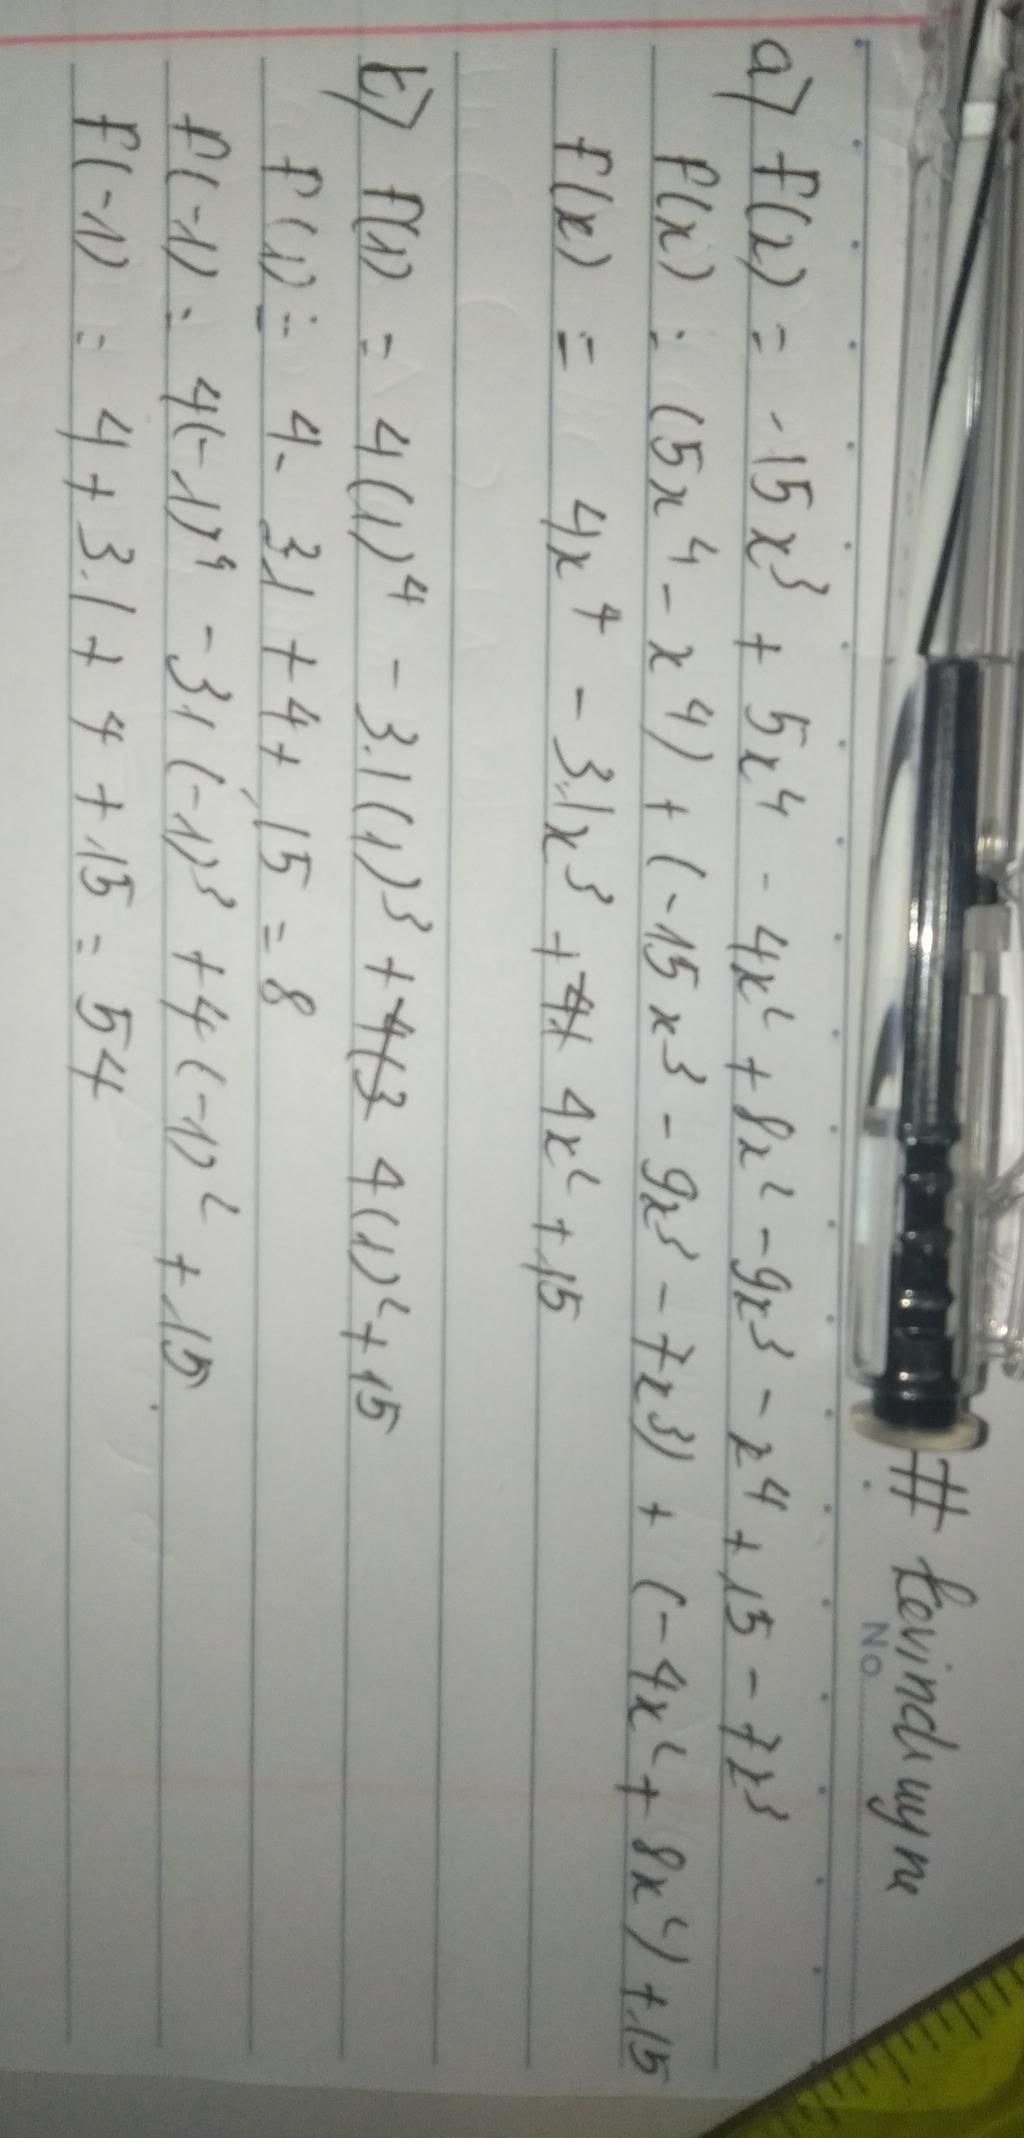 # Levindiyn
No
a) f(x) = -15x³ + 5x⁴ - 4x² + 8x² - 9x³ - x⁴ + 15 - 7x³
f(x) = (5x⁴ - x⁴) + (-15x³ - 9x³ - 7x³) + (-4x² + 8x²) + 15
f(x) = 4x⁴ - 31x³ + 4x² + 15
b) f(1) = 4(1)⁴ - 31(1)³ + 4(1)² + 15
f(1) = 4 - 31 + 4 + 15 = 8
f(-1) = 4(-1)⁴ - 31(-1)³ + 4(-1)² + 15
f(-1) = 4 + 31 + 4 + 15 = 54